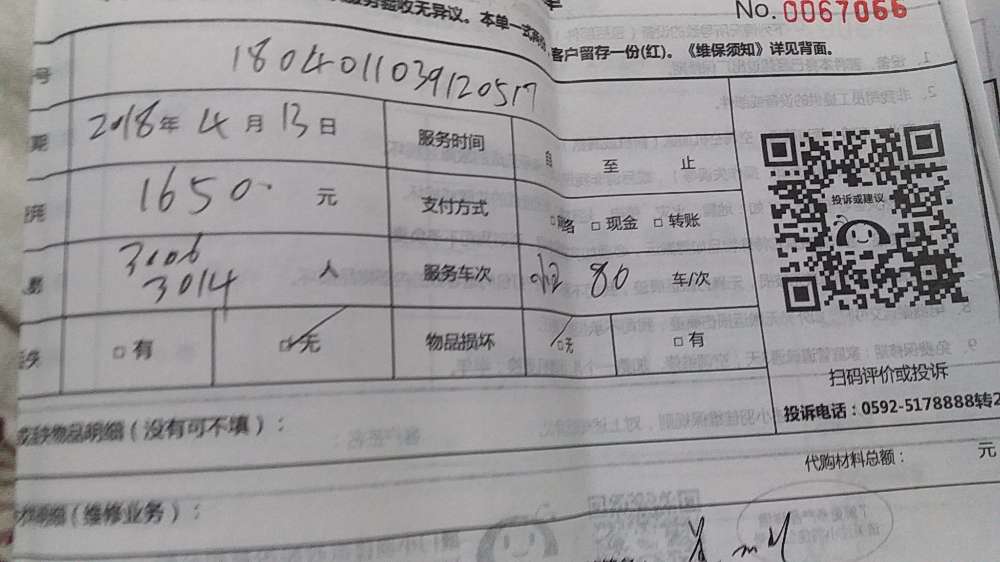 No. 0067066
服务验收无异议。本单一式两份
客户留存一份(红)。《维保须知》详见背面。
号 180401103912051
期 2018年4月13日 服务时间 自 至 止
1650 元 支付方式 □ □现金 □转账
3006
3014 人 服务车次 80 车/次
□有 □无 物品损坏 □无 □有
投诉或建议
扫码评价或投诉
投诉电话：0592-5178888转2
物品明细（没有可不填）：
代购材料总额： 元
（维修业务）：